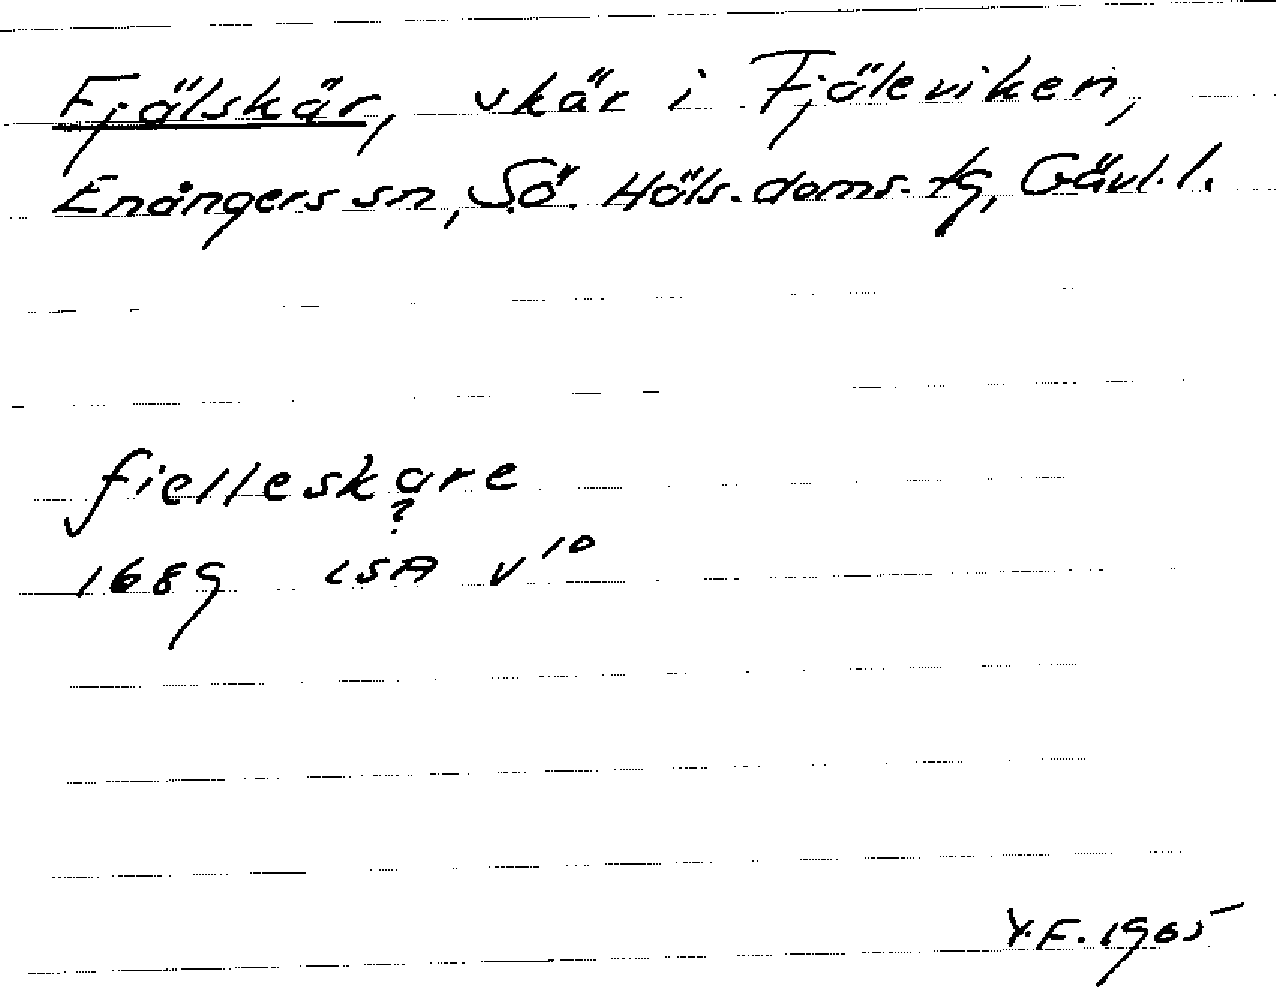 Fjälskär, skär i Fjäleviken,
Enångers sn, Sö. Häls. doms. tg, Gävl. l.
fielleskare
?
1689 LSA V¹⁰
Y.F. 1965